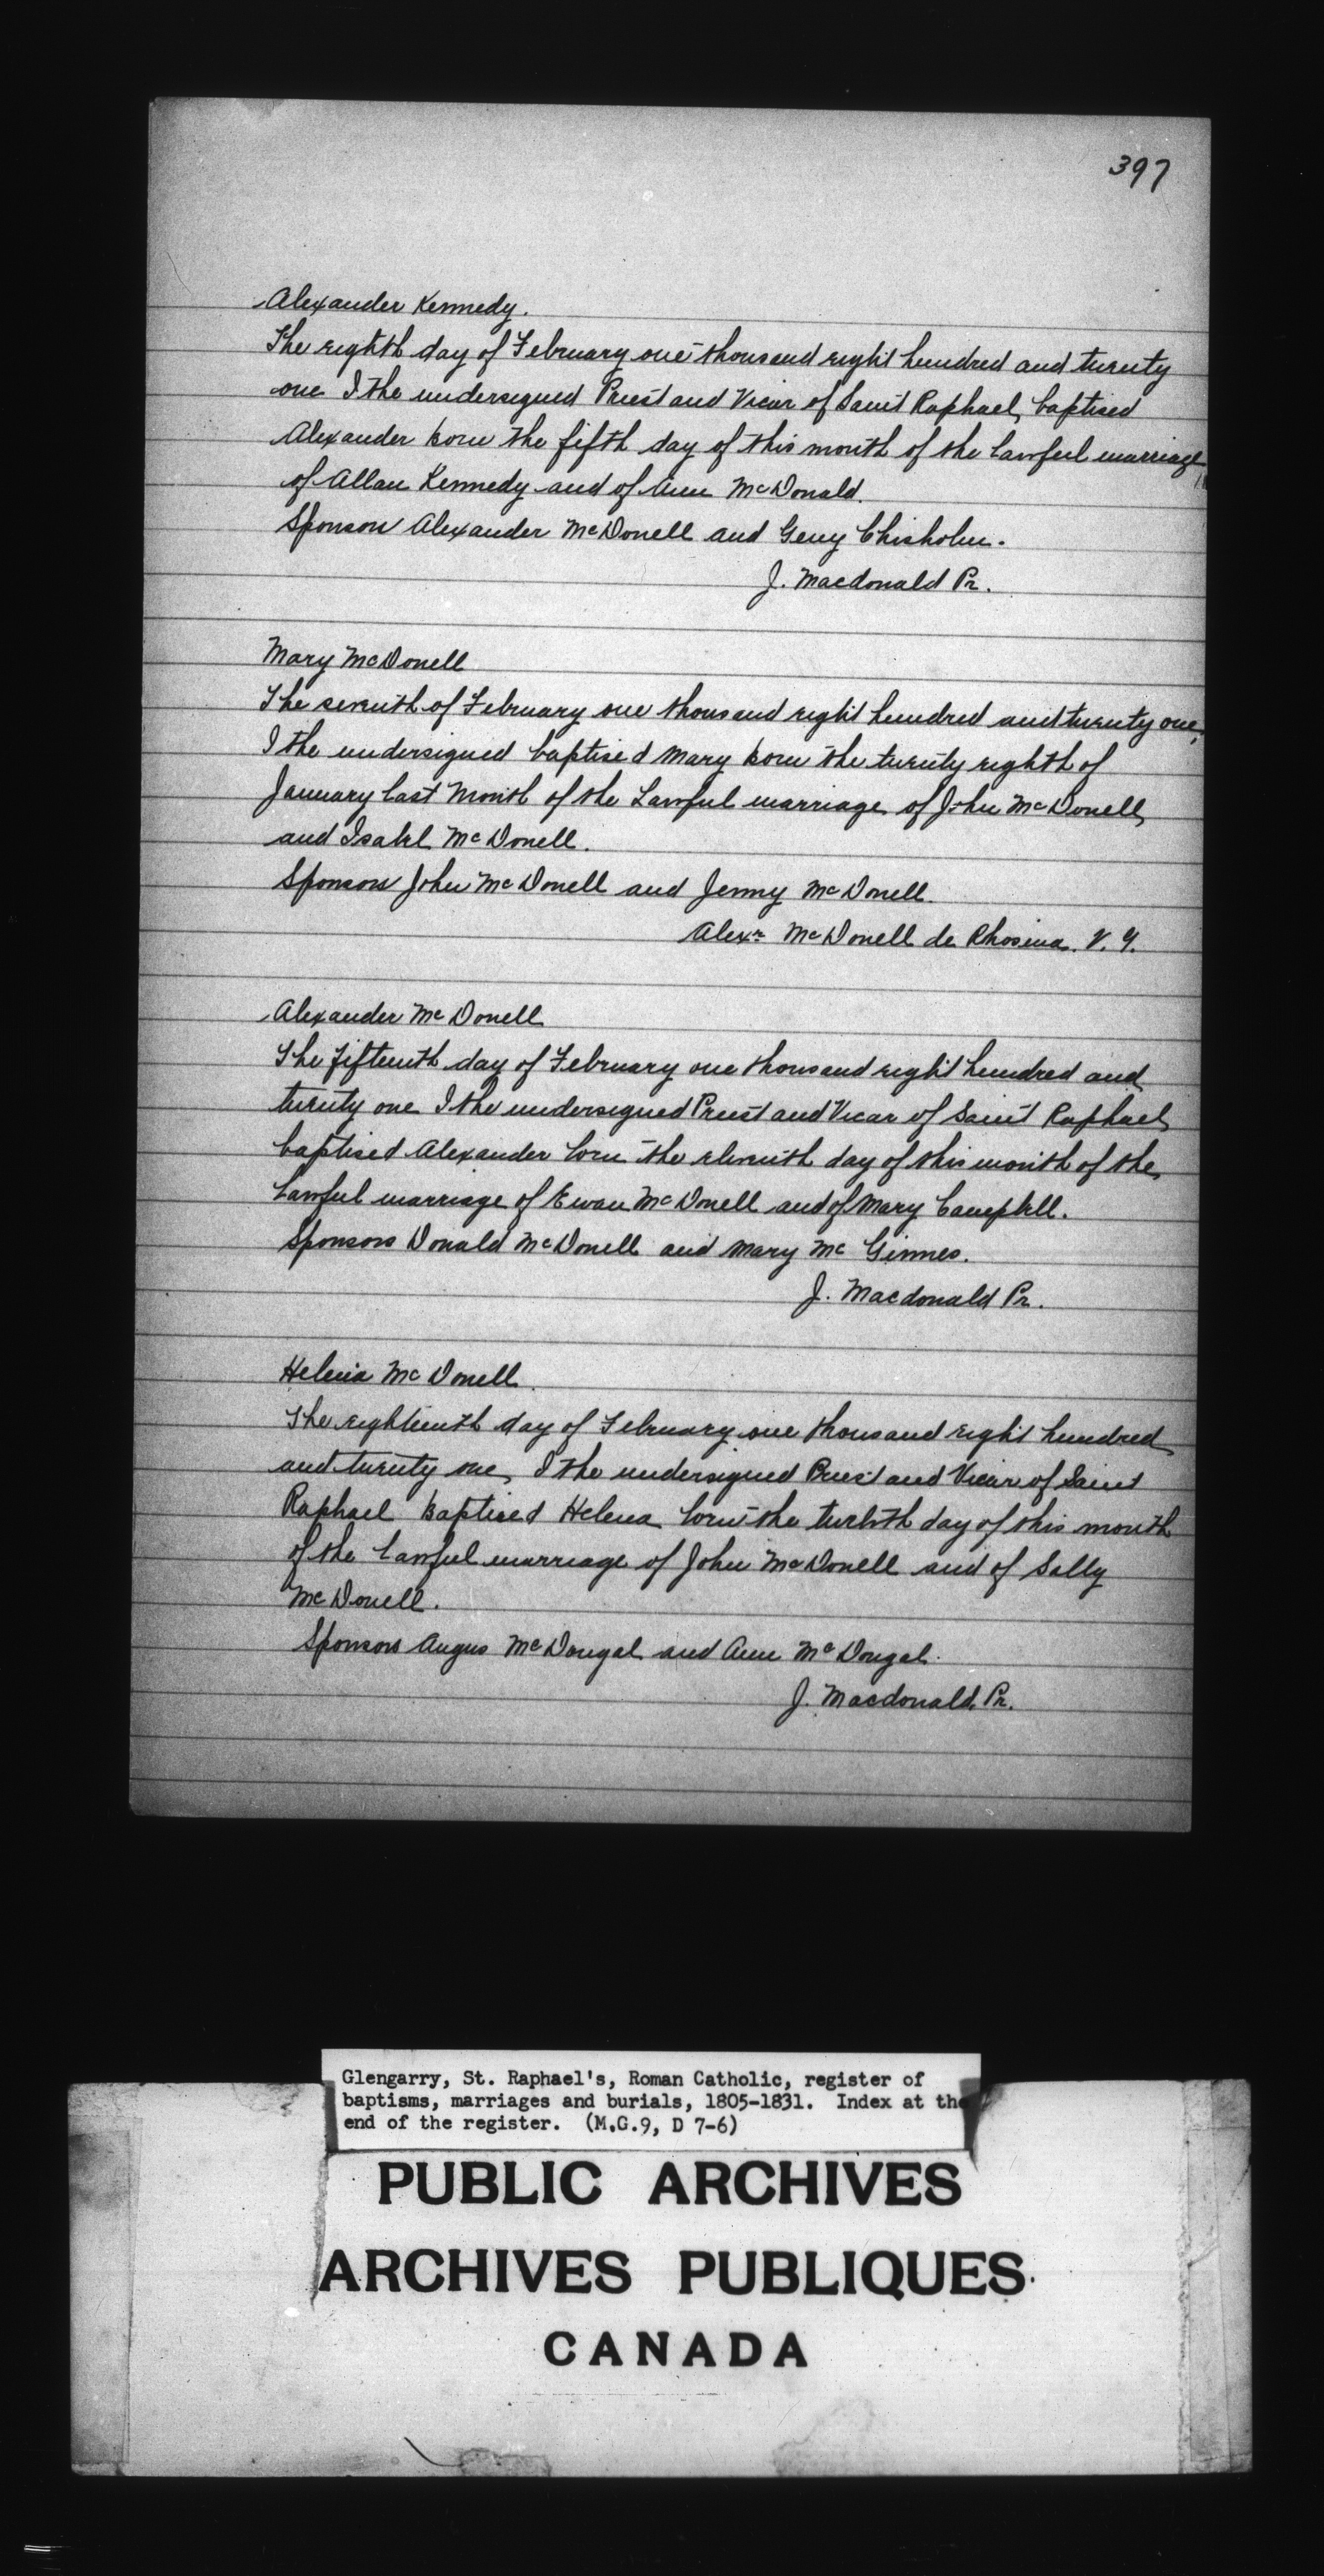 397
Alexander Kennedy.
The eighth day of February one thousand eight hundred and twenty
one I the undersigned Priest and Vicar of Saint Raphael baptised
Alexander born the fifth day of this month of the lawful marriage
of Allan Kennedy and of Ann McDonald.
Sponsors Alexander McDonell and Geny Chisholm.
J. Macdonald Pr.
Mary McDonell
The seventh of February one thousand eight hundred and twenty one,
I the undersigned baptised Mary born the twenty eighth of
January last month of the Lawful marriage of John McDonell
and Isabel McDonell.
Sponsors John McDonell and Jenny McDonell.
Alexr McDonell de Rhosina. V. G.
Alexander McDonell
The fifteenth day of February one thousand eight hundred and
twenty one I the undersigned Priest and Vicar of Saint Raphael
baptised Alexander born the eleventh day of this month of the
lawful marriage of Ewan McDonell and of Mary Campbell.
Sponsors Donald McDonell and Mary Mc Ginnes.
J. Macdonald Pr.
Helena McDonell
The eighteenth day of February one thousand eight hundred
and twenty one, I the undersigned Priest and Vicar of Saint
Raphael baptised Helena born the twelvth day of this month
of the lawful marriage of John McDonell and of Sally
McDonell.
Sponsors Angus McDougal and Ann McDougal.
J. Macdonald. Pr.
Glengarry, St. Raphael's, Roman Catholic, register of
baptisms, marriages and burials, 1805-1831. Index at the
end of the register. (M.G.9, D 7-6)
PUBLIC ARCHIVES
ARCHIVES PUBLIQUES
CANADA